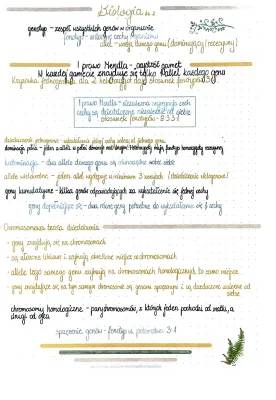 Biologia
genotyp - zespół wszystkich genów w organizmie
fenotyp - wszystkie cechy organizmu
allel - wersja danego genu (dominujący / recesywny)
I prawo Mendla - czystość gamet
W każdej gamecie znajduje się tylko 1 allel każdego genu
Krzyżówka jednogenowa dla 2 heterozygot daje stosunek fenotypów 3:1
II prawo Mendla - niezależna segregacja cech
cechy są dziedziczone niezależnie od siebie
stosunek fenotypów - 9:3:3:1
dziedziczenie jednogenowe - jednej cechy jednego genu
dominacja pełna - jeden z alleli w pełni dominuje nad drugim
kodominacja - dwa allele danego genu są względem siebie
allele wielokrotne - jeden allel występuje w minimum 3 wersjach
geny kumulatywne - kilka genów odpowiadających za wykształcenie się jednej cechy
geny dopełniające się - dwa różne geny potrzebne do wykształcenia się 1 cechy
Chromosomowa teoria dziedziczenia
- geny znajdują się na chromosomach
- są ułożone liniowo i zajmują określone miejsce w chromosomach
- allele tego samego genu zajmują na chromosomach homologicznych to samo miejsce
- geny znajdujące się na tym samym chromosomie są genami sprzężonymi i są dziedziczone zależnie od siebie
chromosomy homologiczne - pary chromosomów, z których jeden pochodzi od matki, a drugi od ojca
sprzężenie genów - fenotyp w potomstwie 3:1